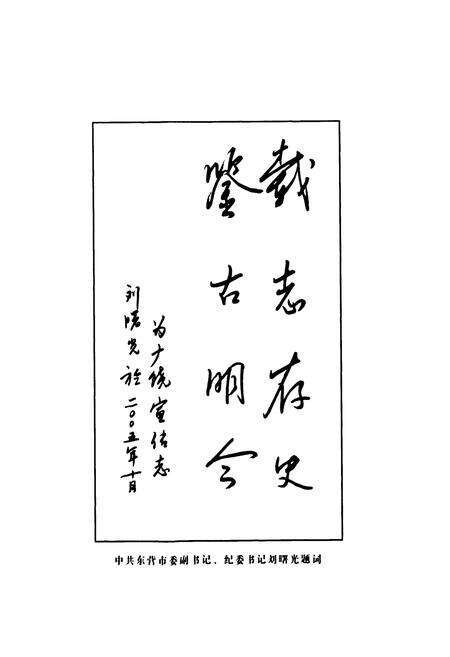 载志存史
鉴古明今
为广饶宣传志
刘曙光於二〇〇五年十月
中共东营市委副书记、纪委书记刘曙光题词